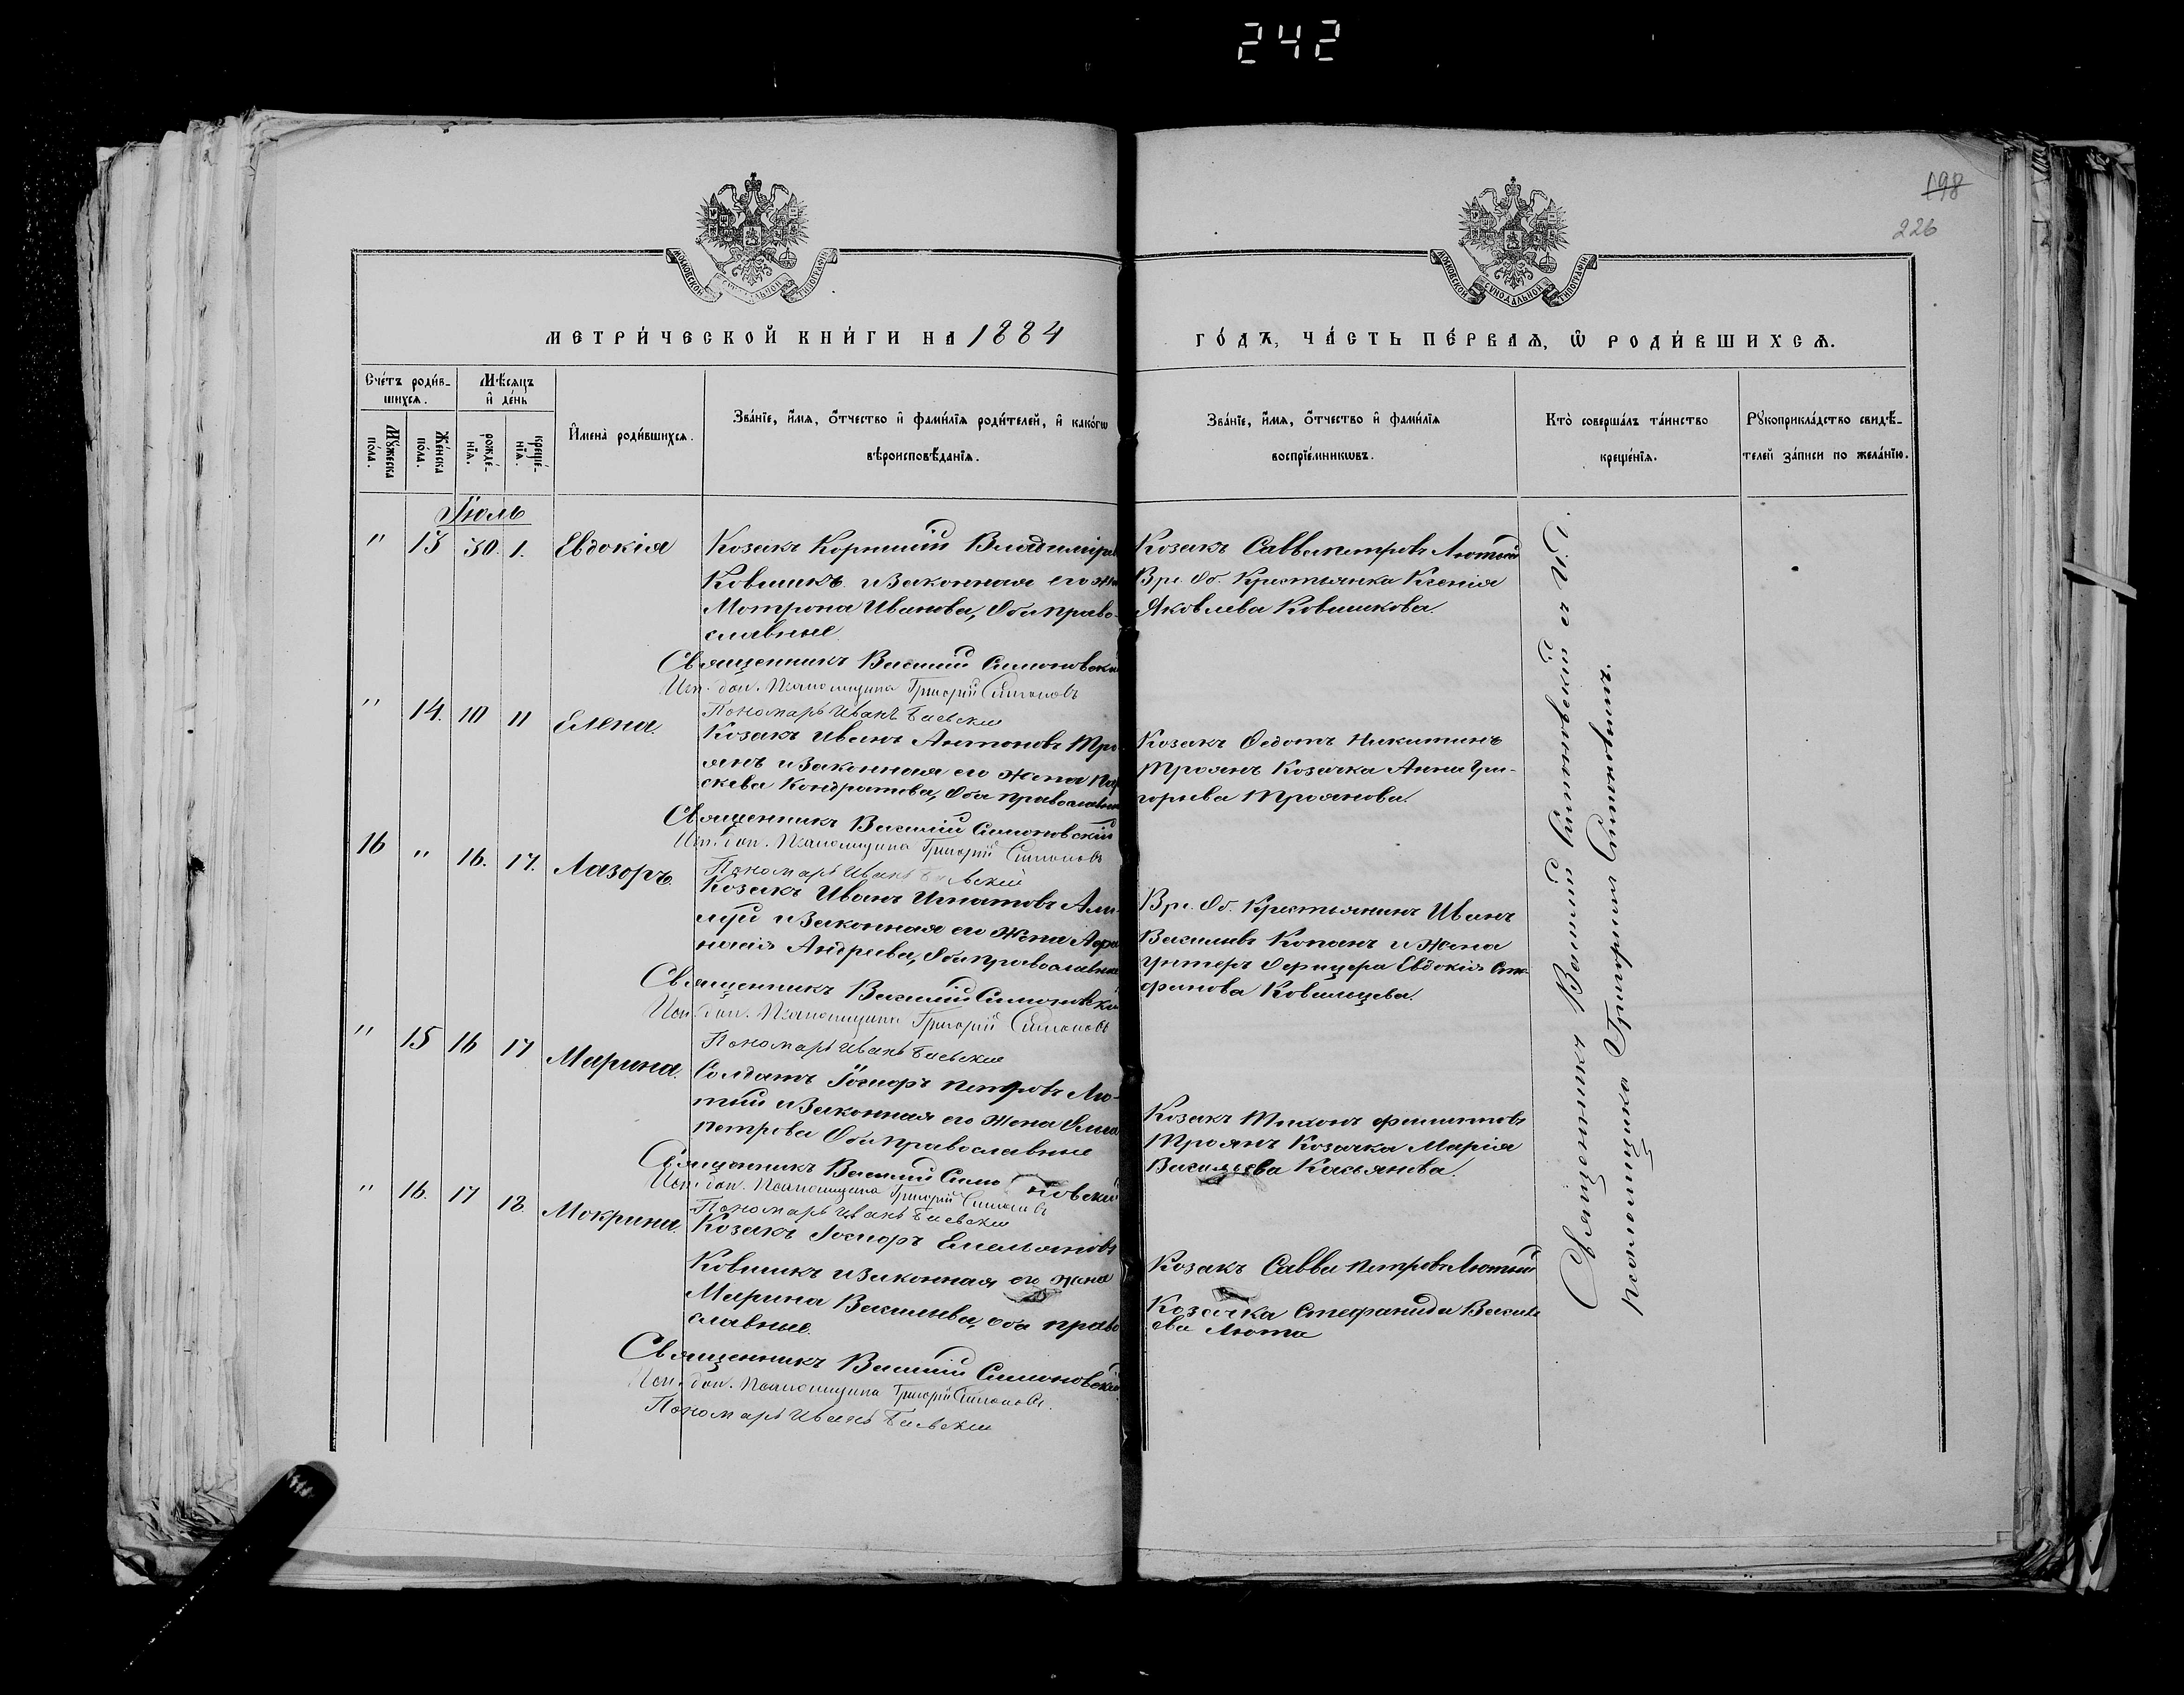 242
198
226
МОСКОВСКОЙ СѴНОДАЛЬНОЙ ТИПОГРАФІИ
МОСКОВСКОЙ СѴНОДАЛЬНОЙ ТИПОГРАФІИ
МЕТРИ́ЧЕСКОЙ КНИ́ГИ НА 1884
ГО́ДЪ, ЧА́СТЬ ПЕ́РВАѦ, Ѡ РОДИ́ВШИХСѦ.
Сче́тъ роди́в-
шихсѧ.
Мѣ́сяцъ
и҆ де́нь
Мꙋ́жеска
по́ла.
Же́нска
по́ла.
рожде́-
нїѧ.
креще́-
нїѧ.
И҆мена̀ роди́вшихсѧ.
Зва́нїе, и҆́мѧ, ѻ҆́тчество и҆ фами́лїѧ роди́телей, и҆ како́гѡ
вѣроисповѣ́данїѧ.
Зва́нїе, и҆́мѧ, ѻ҆́тчество и҆ фами́лїѧ
воспрїе́мникѡвъ.
Кто̀ соверша́лъ та́инство
креще́нїѧ.
Рꙋкоприкла́дство свидѣ́-
телей за́писи по жела́нїю.
Іюль
" 13 30. 1. Евдокія
Козакъ Корнилій Владиміров
Ковшикъ и законная его же
Мотрона Иванова, Оба право-
славные.
Священникъ Василій Симоновскій
Исп. дол. Псаломщика Григорій Симоновъ
Пономарь Иванъ
Козакъ Савва петровъ Лютый
Вре. Об. Крестьянка Ксенія
Яковлева Ковшикова.
" 14. 10 11 Елена.
Козакъ Иванъ Антоновъ Тро-
янъ и законная его жена Пар
скева Кондратова, Оба православные
Священникъ Василій Симоновскій
Исп. дол. Псаломщика Григорій Симоновъ
Пономарь Иванъ
Козакъ Федотъ Никитинъ
Троянъ Козачка Анна Гри-
горьева Троянова.
16 " 16. 17. Лазорь.
Козакъ Иванъ Игнатовъ
и законная его жена Афа
насія Андреева, Оба православные
Священникъ Василій Симоновскій
Исп. дол. Псаломщика Григорій Симоновъ
Пономарь Иванъ
Вре. Об. Крестьянинъ Иванъ
Василіевъ Копанъ и жена
унтеръ Офицера Евдокія
Ковальцева.
" 15 16 17 Марина.
Солдатъ петровъ Лю-
тый и законная его жена
петрова Оба православные
Священникъ Василій Симоновскій
Исп. дол. Псаломщика Григорій Симоновъ
Пономарь Иванъ
Козакъ Тихонъ филиповъ
Троянъ Козачка Марія
Васильева Касьянова.
" 16. 17 18. Мокрина.
Козакъ Емельяновъ
Ковшикъ и законная его жена
Марина Васильева, оба право
славные.
Священникъ Василій Симоновскій
Исп. дол. Псаломщика Григорій Симоновъ.
Пономарь Иванъ
Козакъ Савва петровъ Лютый
Козачка Стефанида Василь
ева Люта
Священникъ Василій Симоновскій и И. д.
псаломщика Григорій Симоновичъ.